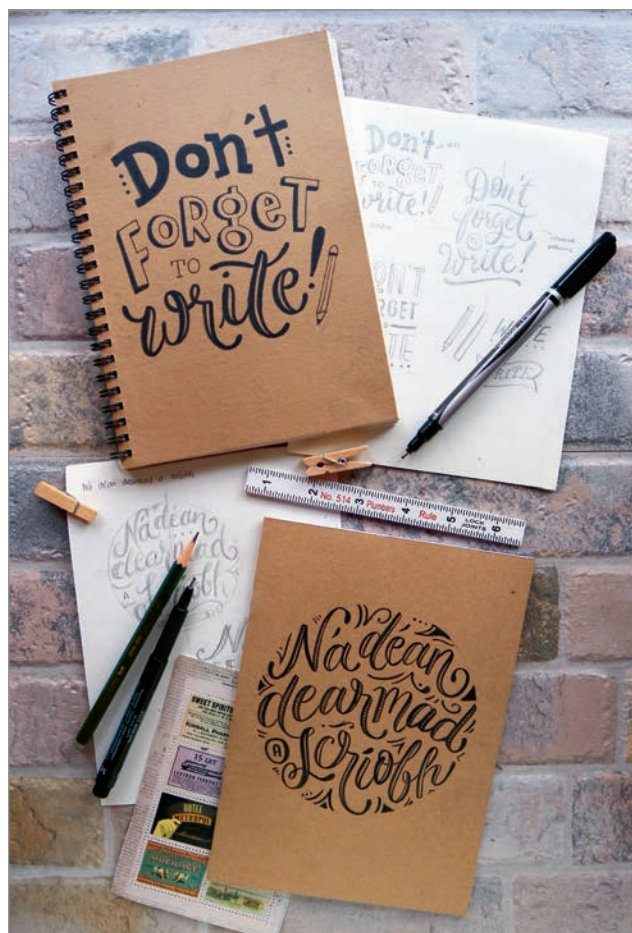 Don't
FORGET
TO
write!
Don't
FORGET
TO
write!!
Don't
forget
to
Write!
WRITE
WRITE
1 2 No. 514 3 Plumbers 4 Rule 5 LOCK JOINTS 6
Ná déan
dearmad
a
Scríobh
Ná déan
dearmad
a Scríobh
SWEET SPIRITS
15 LET
HOTEL
METROPOL
MUCILAGE